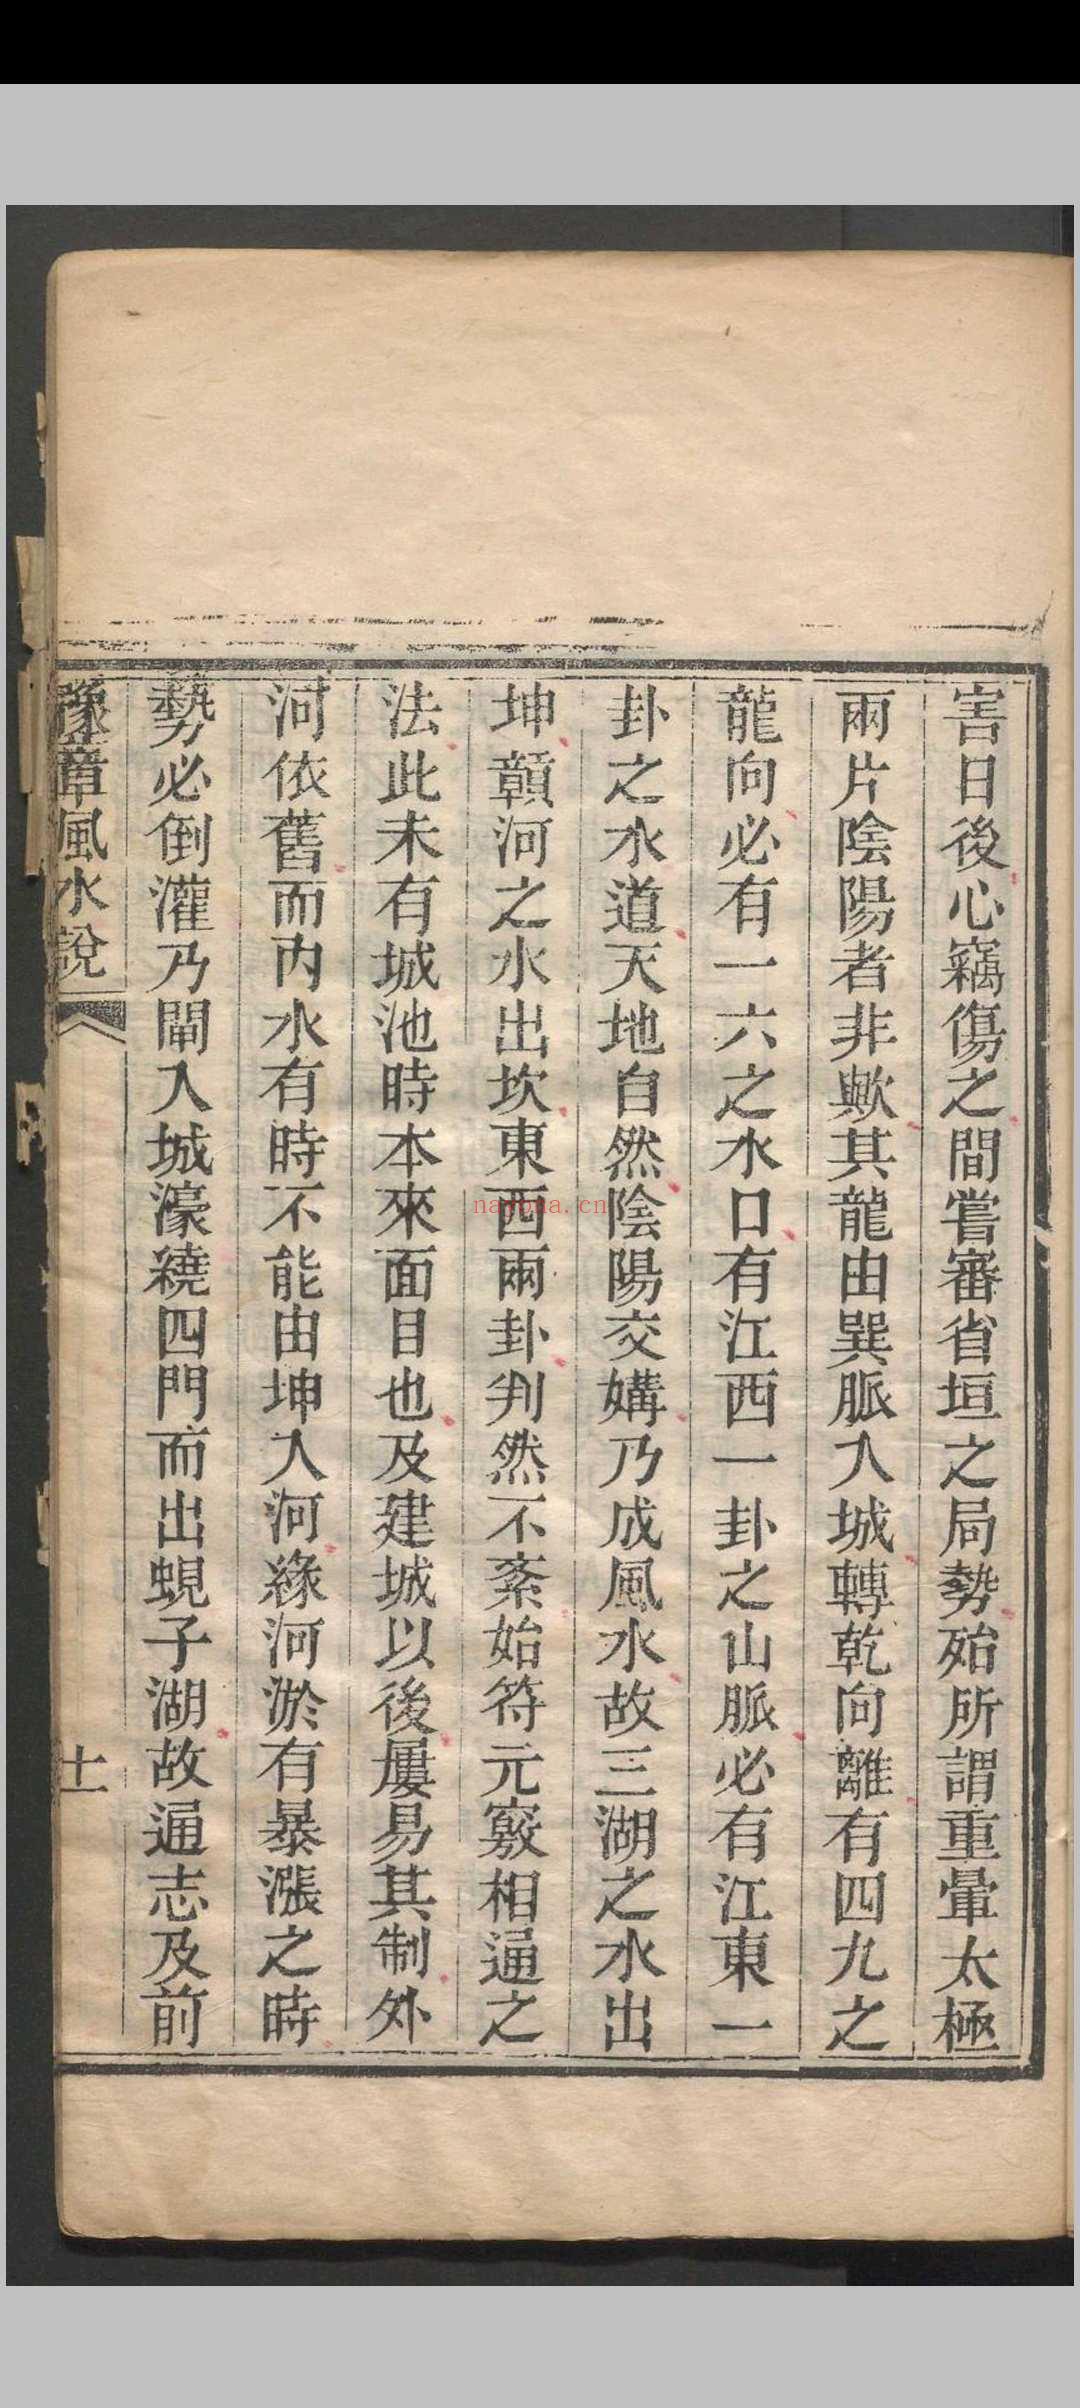 害日後心竊傷之間嘗審省垣之局勢殆所謂重暈太極
兩片陰陽者非歟其龍由巽脈入城轉乾向離有四九之
龍向必有一六之水口有江西一卦之山脈必有江東一
卦之水道天地自然陰陽交媾乃成風水故三湖之水出
坤贑河之水出坎東西兩卦判然不紊始符元竅相通之
法此未有城池時本來面目也及建城以後屢易其制外
河依舊而內水有時不能由坤入河緣河淤有暴漲之時
勢必倒灌乃閘入城濠繞四門而出蜆子湖故通志及前
豫章風水說
十一
nayona.cn